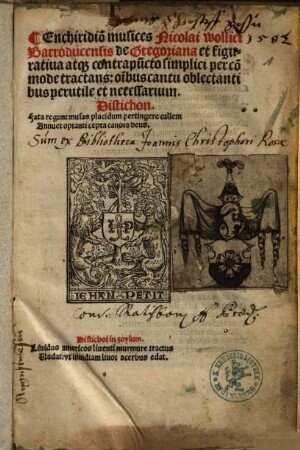 ¶ Enchiridiō musices Nicolai wollici
Barroducensis de Gregoriana et figu-
ratiua atq; contrapūcto simplici per cō
mode tractans: oībus cantu oblectanti
bus perutile et necessarium.
Distichon.
Fata regunt musas placidum pertingere callem
Annuet optanti cepta canora deus.
Sum ex Bibliotheca Joannis Christophori Rose
IP
IEHAN · PETIT
Distichon in zoylum.
Liuidus amercos liuenti murmure tractus
Uadat; vt inuidiam liuor acerbus edat.